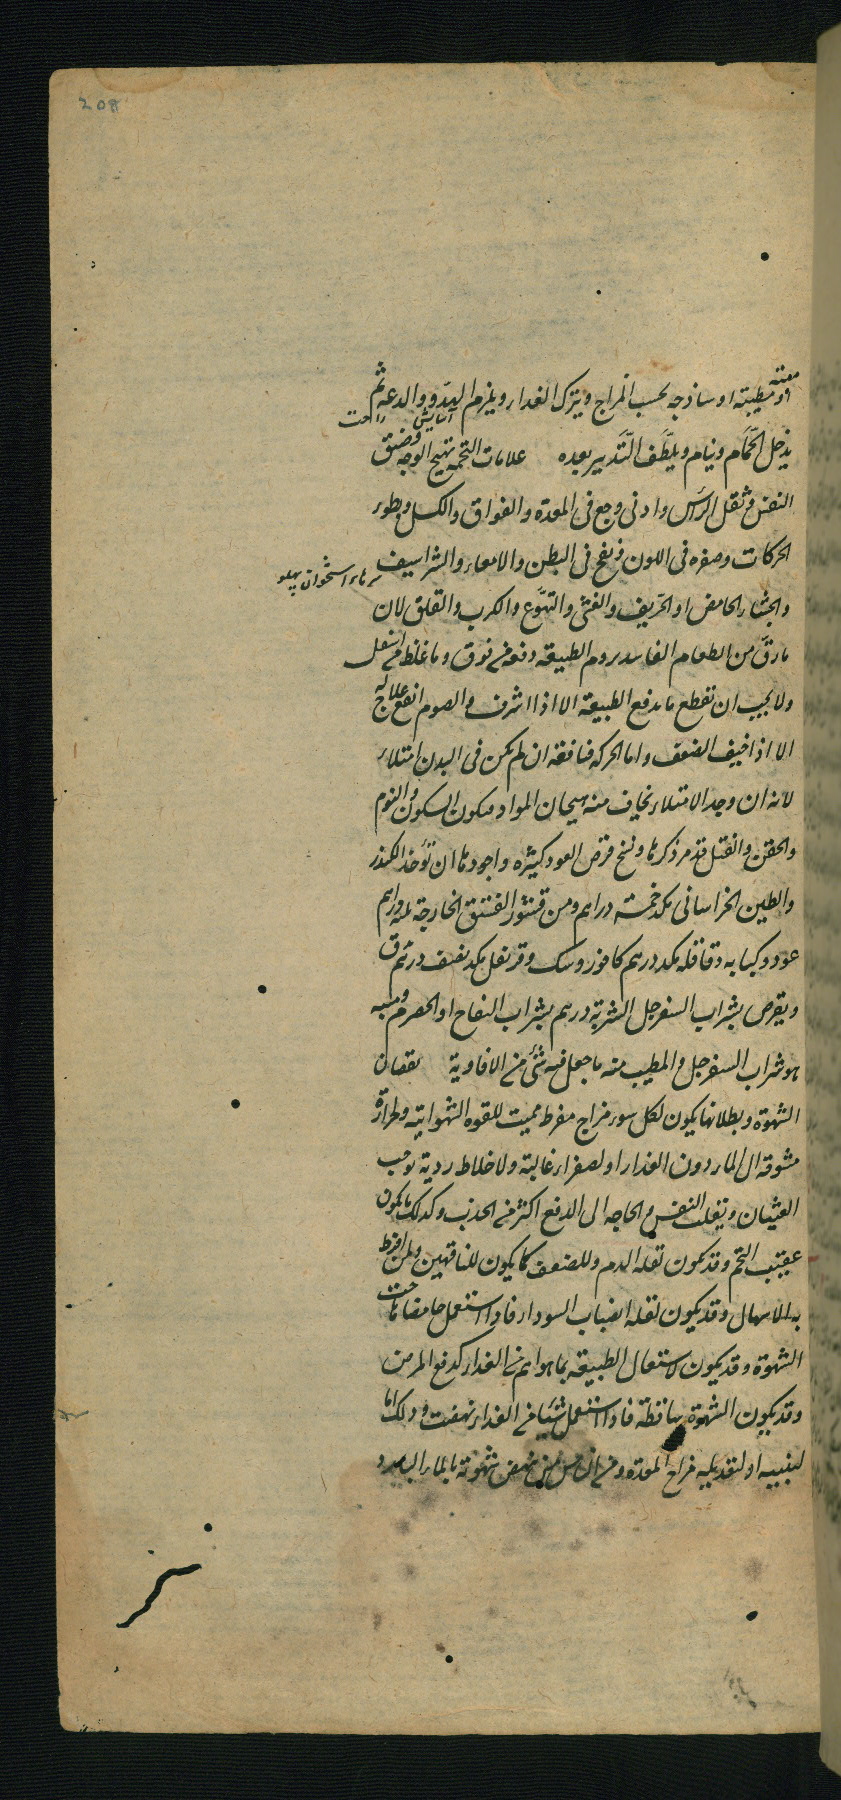 208
او مطيبته او ساذجه بحسب المزاج ويترك الغذاء ويلزم الهدو والدعه ثم
آسايش راحت
يدخل الحمّام وينام ويلطّف التّدبير بعده علامات التخمه تهيج الوجه وضيق
النفس وثقل الرأس وادنى وجع فى المعدة والفواق والكسل وبطوء
الحركات وصفره فى اللون ونفخ فى البطن والامعاء والشراسيف
سرهاء استخوان پهلو
والجشاء الحامض او الحرّيف والغثى والتهوّع والكرب والقلق لان
مارقّ من الطعام الفاسد يروم الطبيعة دفعه من فوق وما غلظ من اسفل
ولا يجب ان تقطع ما يدفع الطبيعة الا اذا اشرف والصوم انفع علاج له
الا اذا خيف الضعف واما الحركه فنافعة ان لم يكن فى البدن امتلاء
لانه ان وجد الامتلاء يخاف منه هيجان المواد فيكون السكون والنوم
والحقن والفتل قد مر ذكرها ونسخ قرص العود كثيره واجودها ان تؤخذ الكندر
والطين الخراسانى يكد خمسة دراهم ومن قشور الفستق الخارجة ثلثه دراهم
عود وكبابه وقاقله يكد درهم كافور ومسك وقرنفل يكد نصف درهم يدق
ويقرص بشراب السفرجل الشربة درهم بشراب التفاح او الحصرم وميبه
هو شراب السفرجل والمطيب منه ما جعل فيه شئ من الافاوية نقصان
الشهوة وبطلانها يكون لكل سوء مزاج مفرط مميت للقوه الشهوانية ولحرارة
مشوقه الى الماء دون الغذاء او لصفراء غالبة ولاخلاط ردية توجب
الغثيان وتقلب النفس والحاجه الى الدفع اكثر من الجذب وكذلك ما يكون
عقيب التخم وقد يكون لقلة الدم وللضعف كما يكون للناقهين ولمن افرط
به الاسهال وقد يكون لقلة انصباب السوداء فاذا استعمل حامضا هاجت
الشهوة وقد يكون لاشتغال الطبيعة بما هو اهم من الغذاء كدفع المرض
وقد يكون الشهوة ساقطة فاذا استعمل شيئا من الغذاء نهضت وذلك اما
لتنبيه او لتعديله مزاج المعدة ومن الناس من ينهض شهوته بالماء البارد